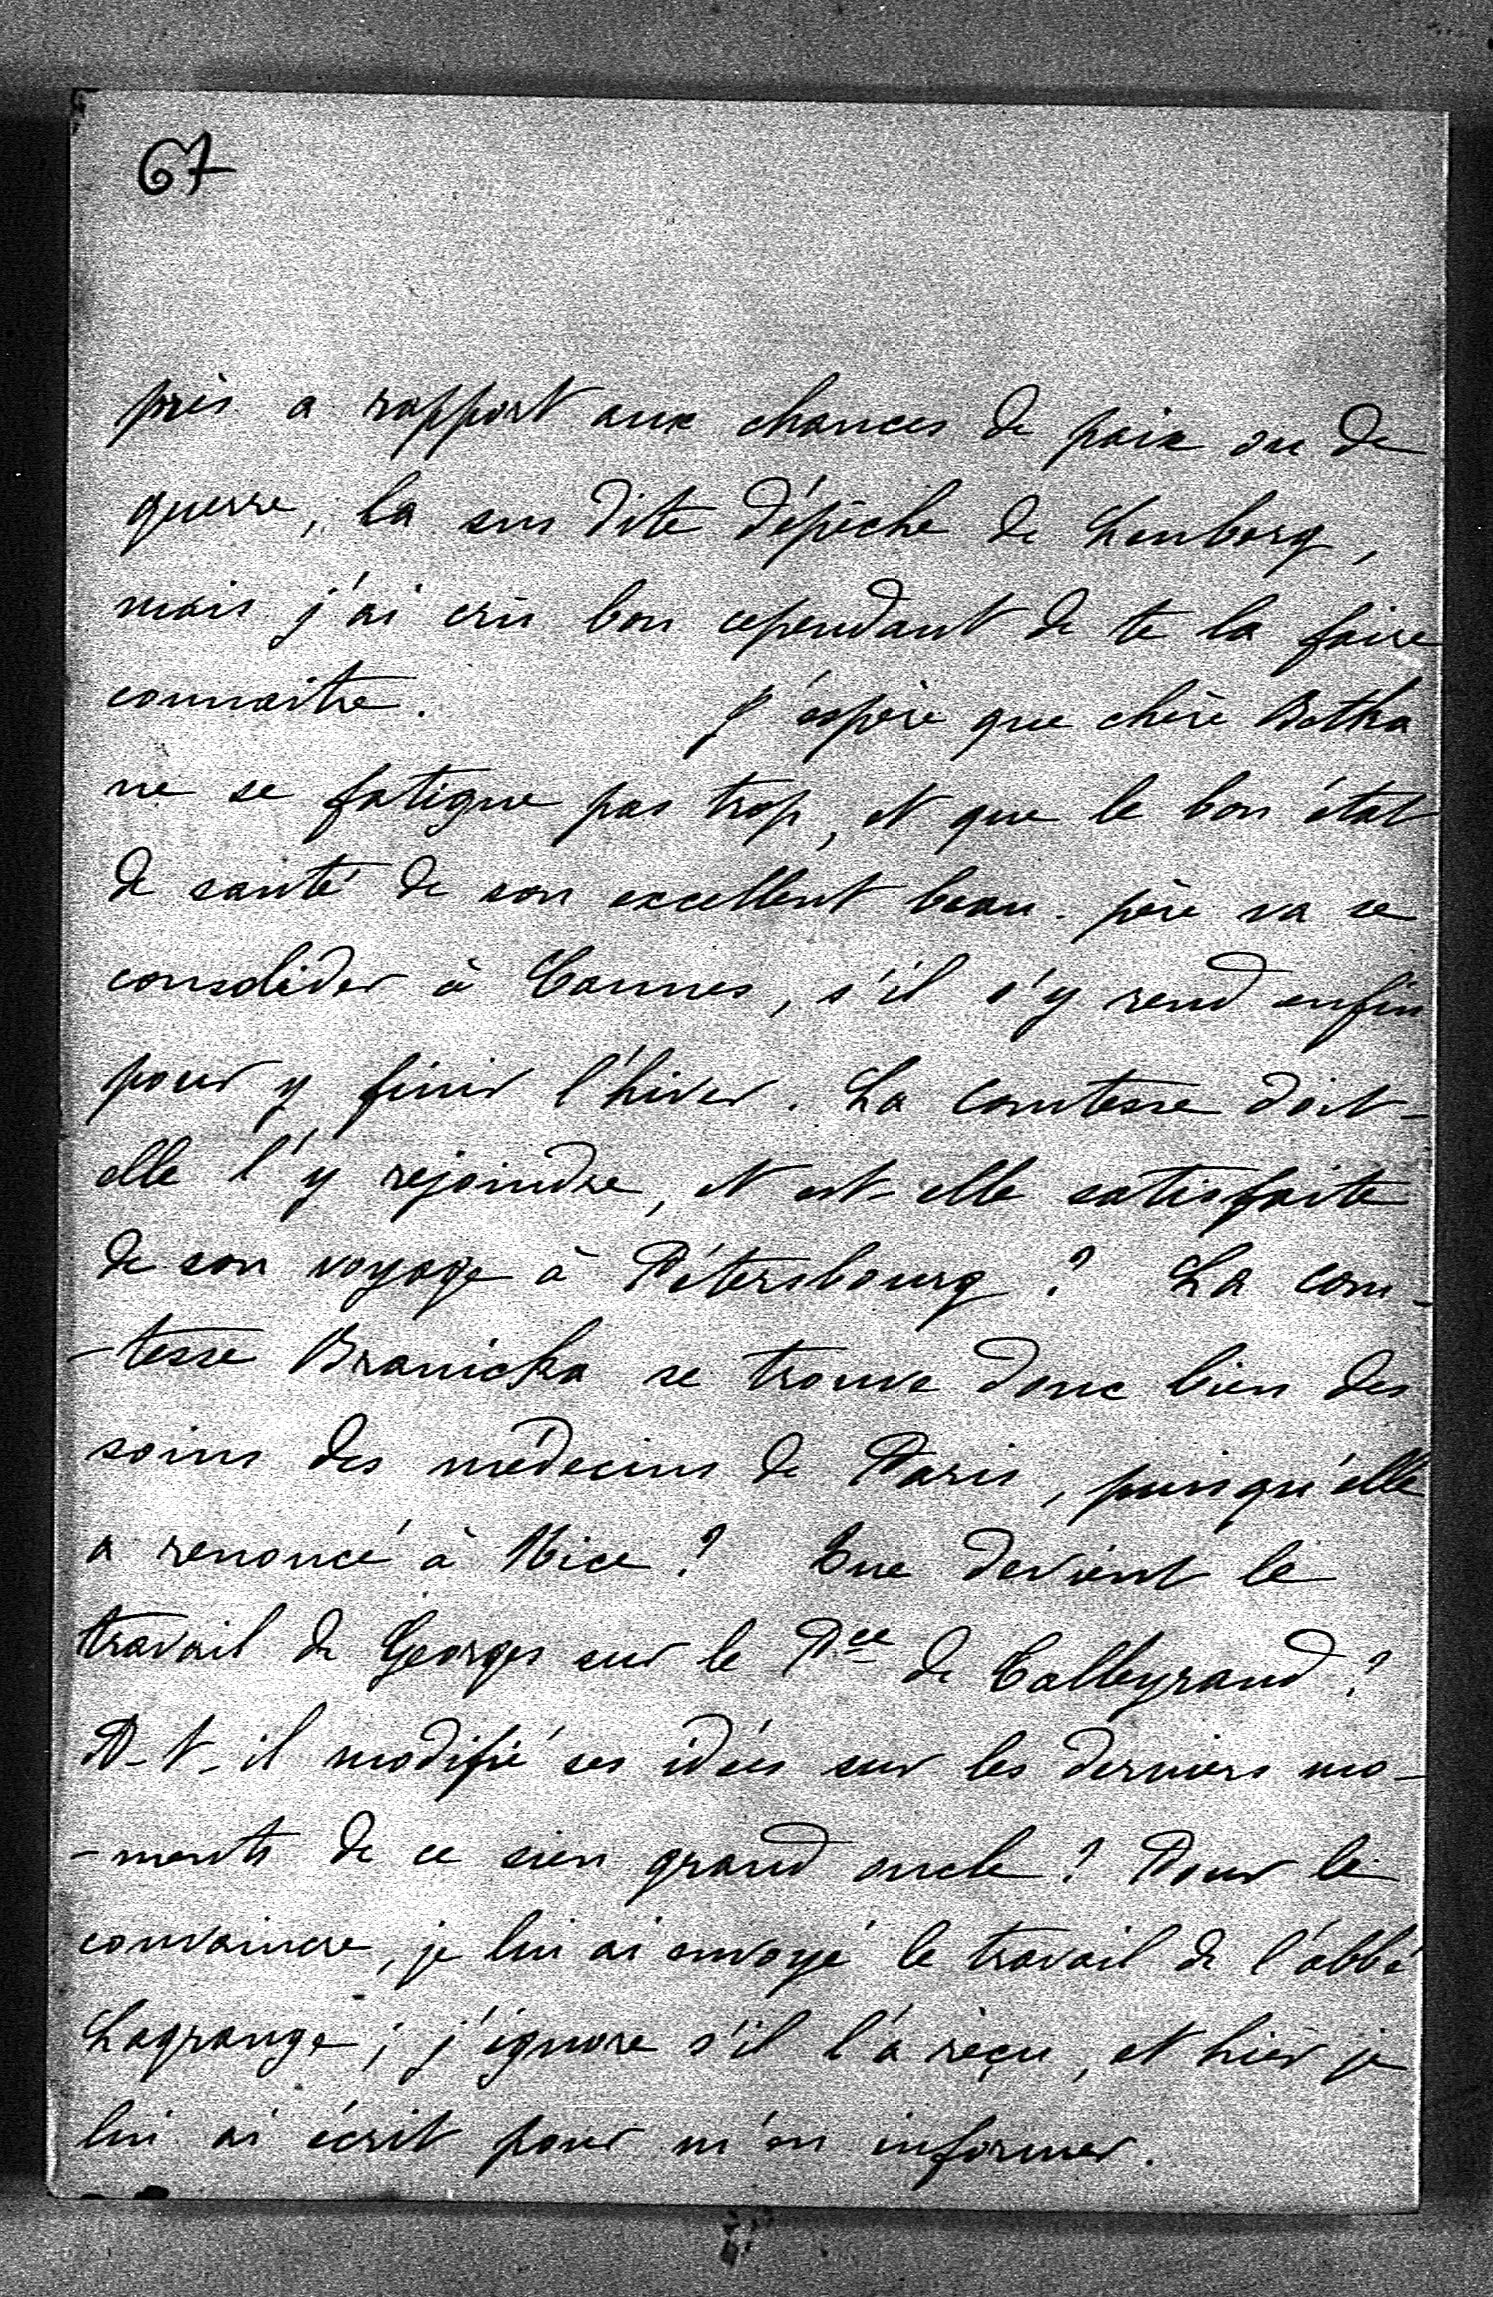 67
près a rapport aux chances de paix ou de
guerre, la sus dite dépêche de Lemberg,
mais j'ai crû bon cependant de te la faire
connaitre. J'espère que chère Betka
ne se fatigue pas trop, et que le bon état
de santé de son excellent beau-père va se
consolider à Cannes, s'il s'y rend enfin
pour y finir l'hiver. La comtesse doit-
elle l'y rejoindre, et est-elle satisfaite
de son voyage à Pétersbourg ? La com-
-tesse Branicka se trouve donc bien des
soins des médecins de Paris, puisqu'elle
a renoncé à Nice ? Que devient le
travail de Georges sur le Pce de Talleyrand ?
A-t-il modifié ses idées sur les derniers mo-
-ments de ce sien grand oncle ? Pour le
convaincre, je lui ai envoyé le travail de l'abbé
Lagrange ; j'ignore s'il l'a reçu, et hier je
lui ai écrit pour m'en informer.